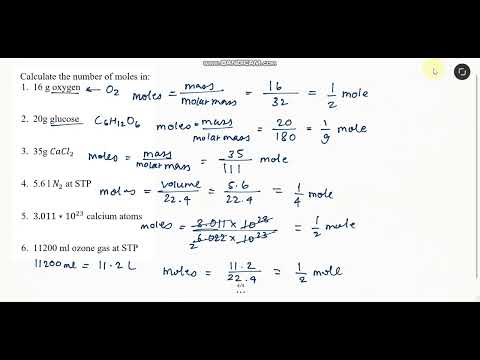 www.BANDICAM.com
Calculate the number of moles in:
1. 16 g oxygen ← O₂ moles = mass/molar mass = 16/32 = 1/2 mole
2. 20g glucose C₆H₁₂O₆ moles = mass/molar mass = 20/180 = 1/9 mole
3. 35g CaCl₂ moles = mass/molar mass = 35/111 mole
4. 5.6 l N₂ at STP moles = volume/22.4 = 5.6/22.4 = 1/4 mole
5. 3.011 * 10²³ calcium atoms moles = 3.011 × 10²³/6.022 × 10²³ 2 = 1/2 mole
6. 11200 ml ozone gas at STP
11200 ml = 11.2 L moles = 11.2/22.4 = 1/2 mole